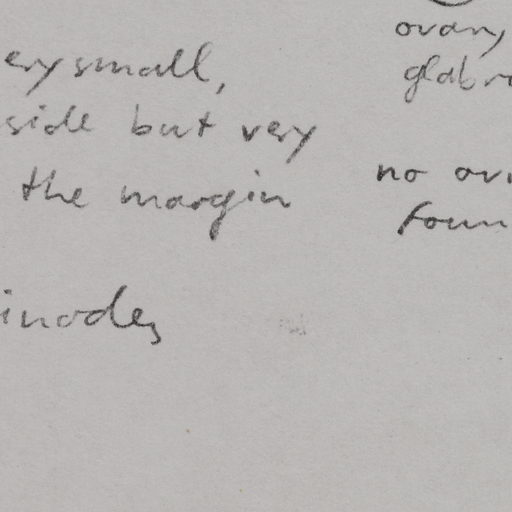 ery small,
side but very
the margin
inodes
ovary
glabr
no ov
foun